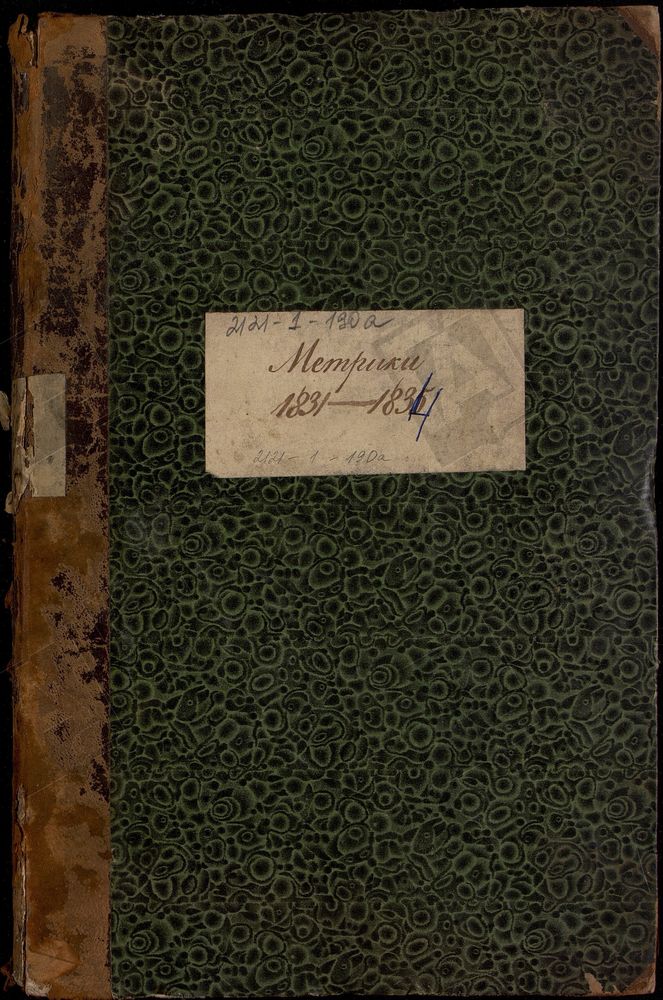 2121-1-190а
Метрики
1831—1834
2121-1-190а